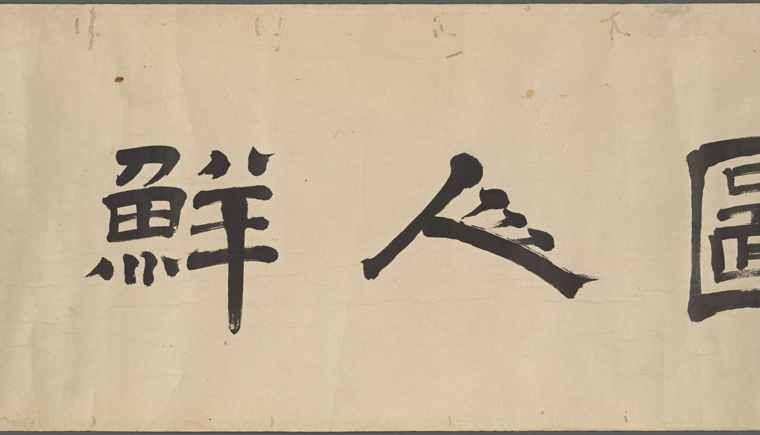 圖人鮮